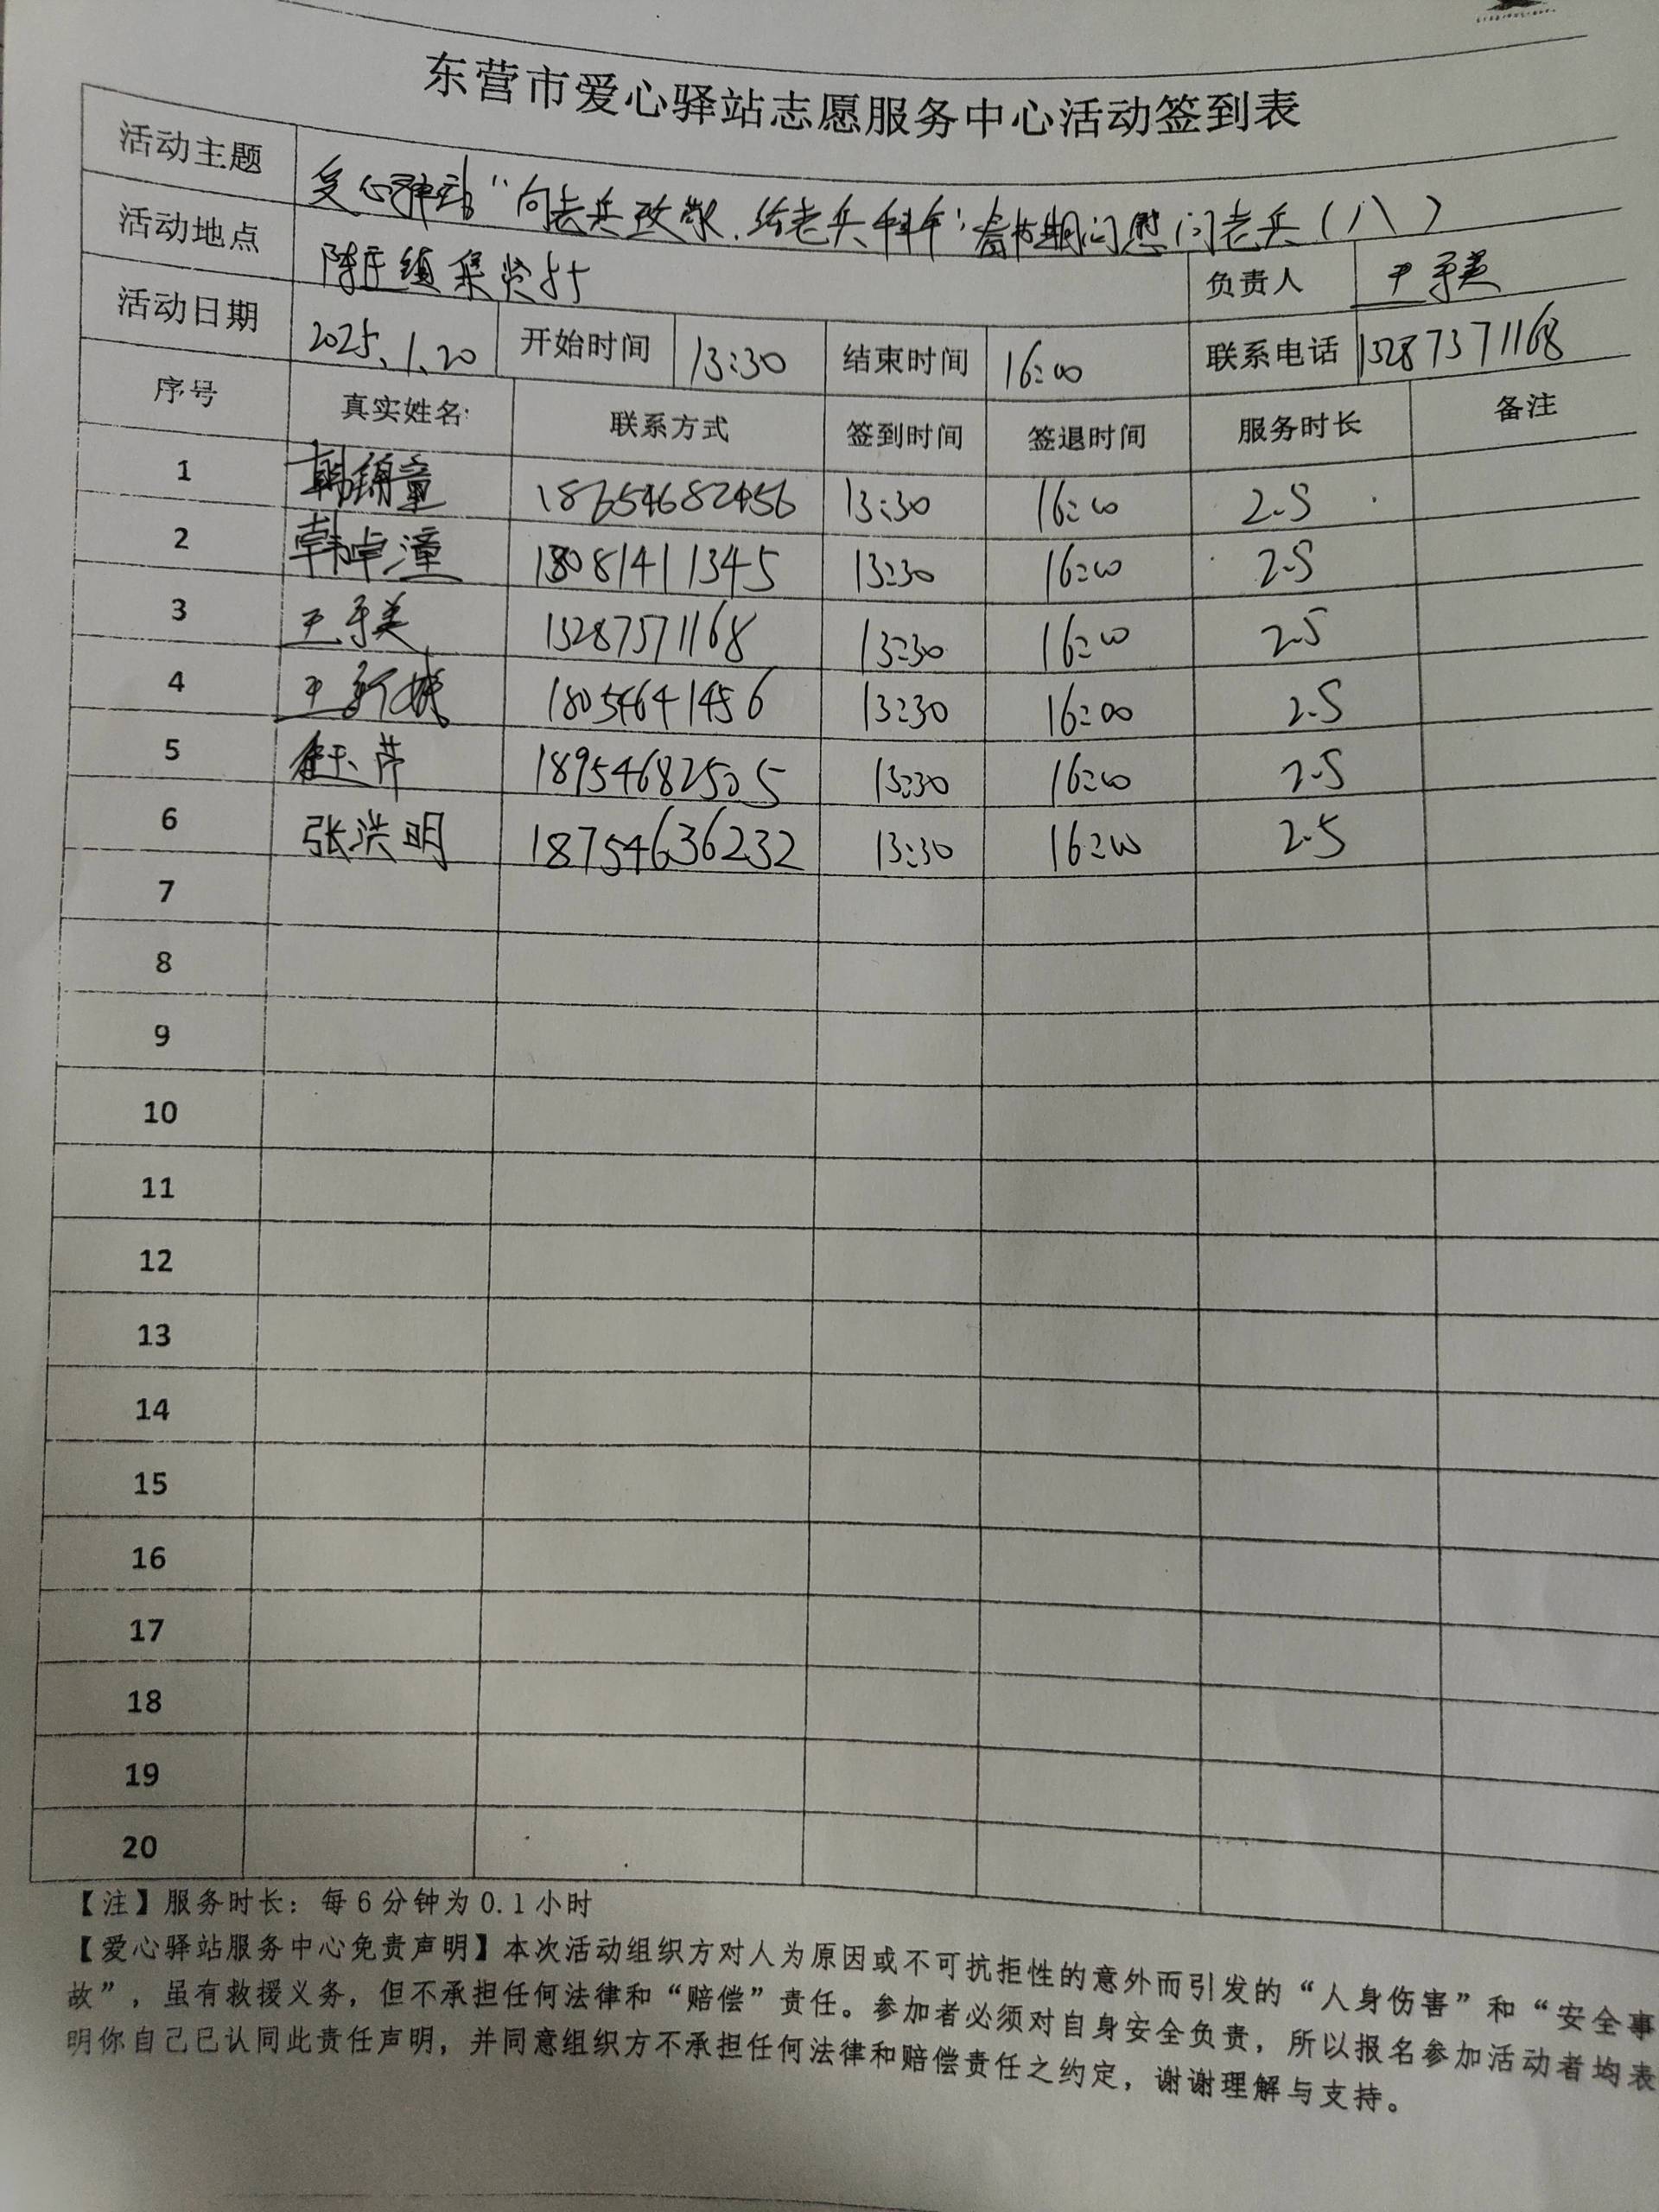 东营市爱心驿站志愿服务中心活动签到表
活动主题 爱心驿站"向老兵致敬.给老兵拜年"春节期间慰问老兵(八)
活动地点 陈庄镇集贤村 负责人
活动日期 2025.1.20 开始时间 13:30 结束时间 16:00 联系电话 13287371168
序号 真实姓名: 联系方式 签到时间 签退时间 服务时长 备注
1 韩锦童 18654682456 13:30 16:00 2.5
2 韩卓潼 18081411345 13:30 16:00 2.5
3 13287371168 13:30 16:00 2.5
4 18054641456 13:30 16:00 2.5
5 18954682505 13:30 16:00 2.5
6 张洪明 18754636232 13:30 16:00 2.5
7
8
9
10
11
12
13
14
15
16
17
18
19
20
【注】服务时长：每6分钟为0.1小时
【爱心驿站服务中心免责声明】本次活动组织方对人为原因或不可抗拒性的意外而引发的“人身伤害”和“安全事
故”，虽有救援义务，但不承担任何法律和“赔偿”责任。参加者必须对自身安全负责，所以报名参加活动者均表
明你自己已认同此责任声明，并同意组织方不承担任何法律和赔偿责任之约定，谢谢理解与支持。